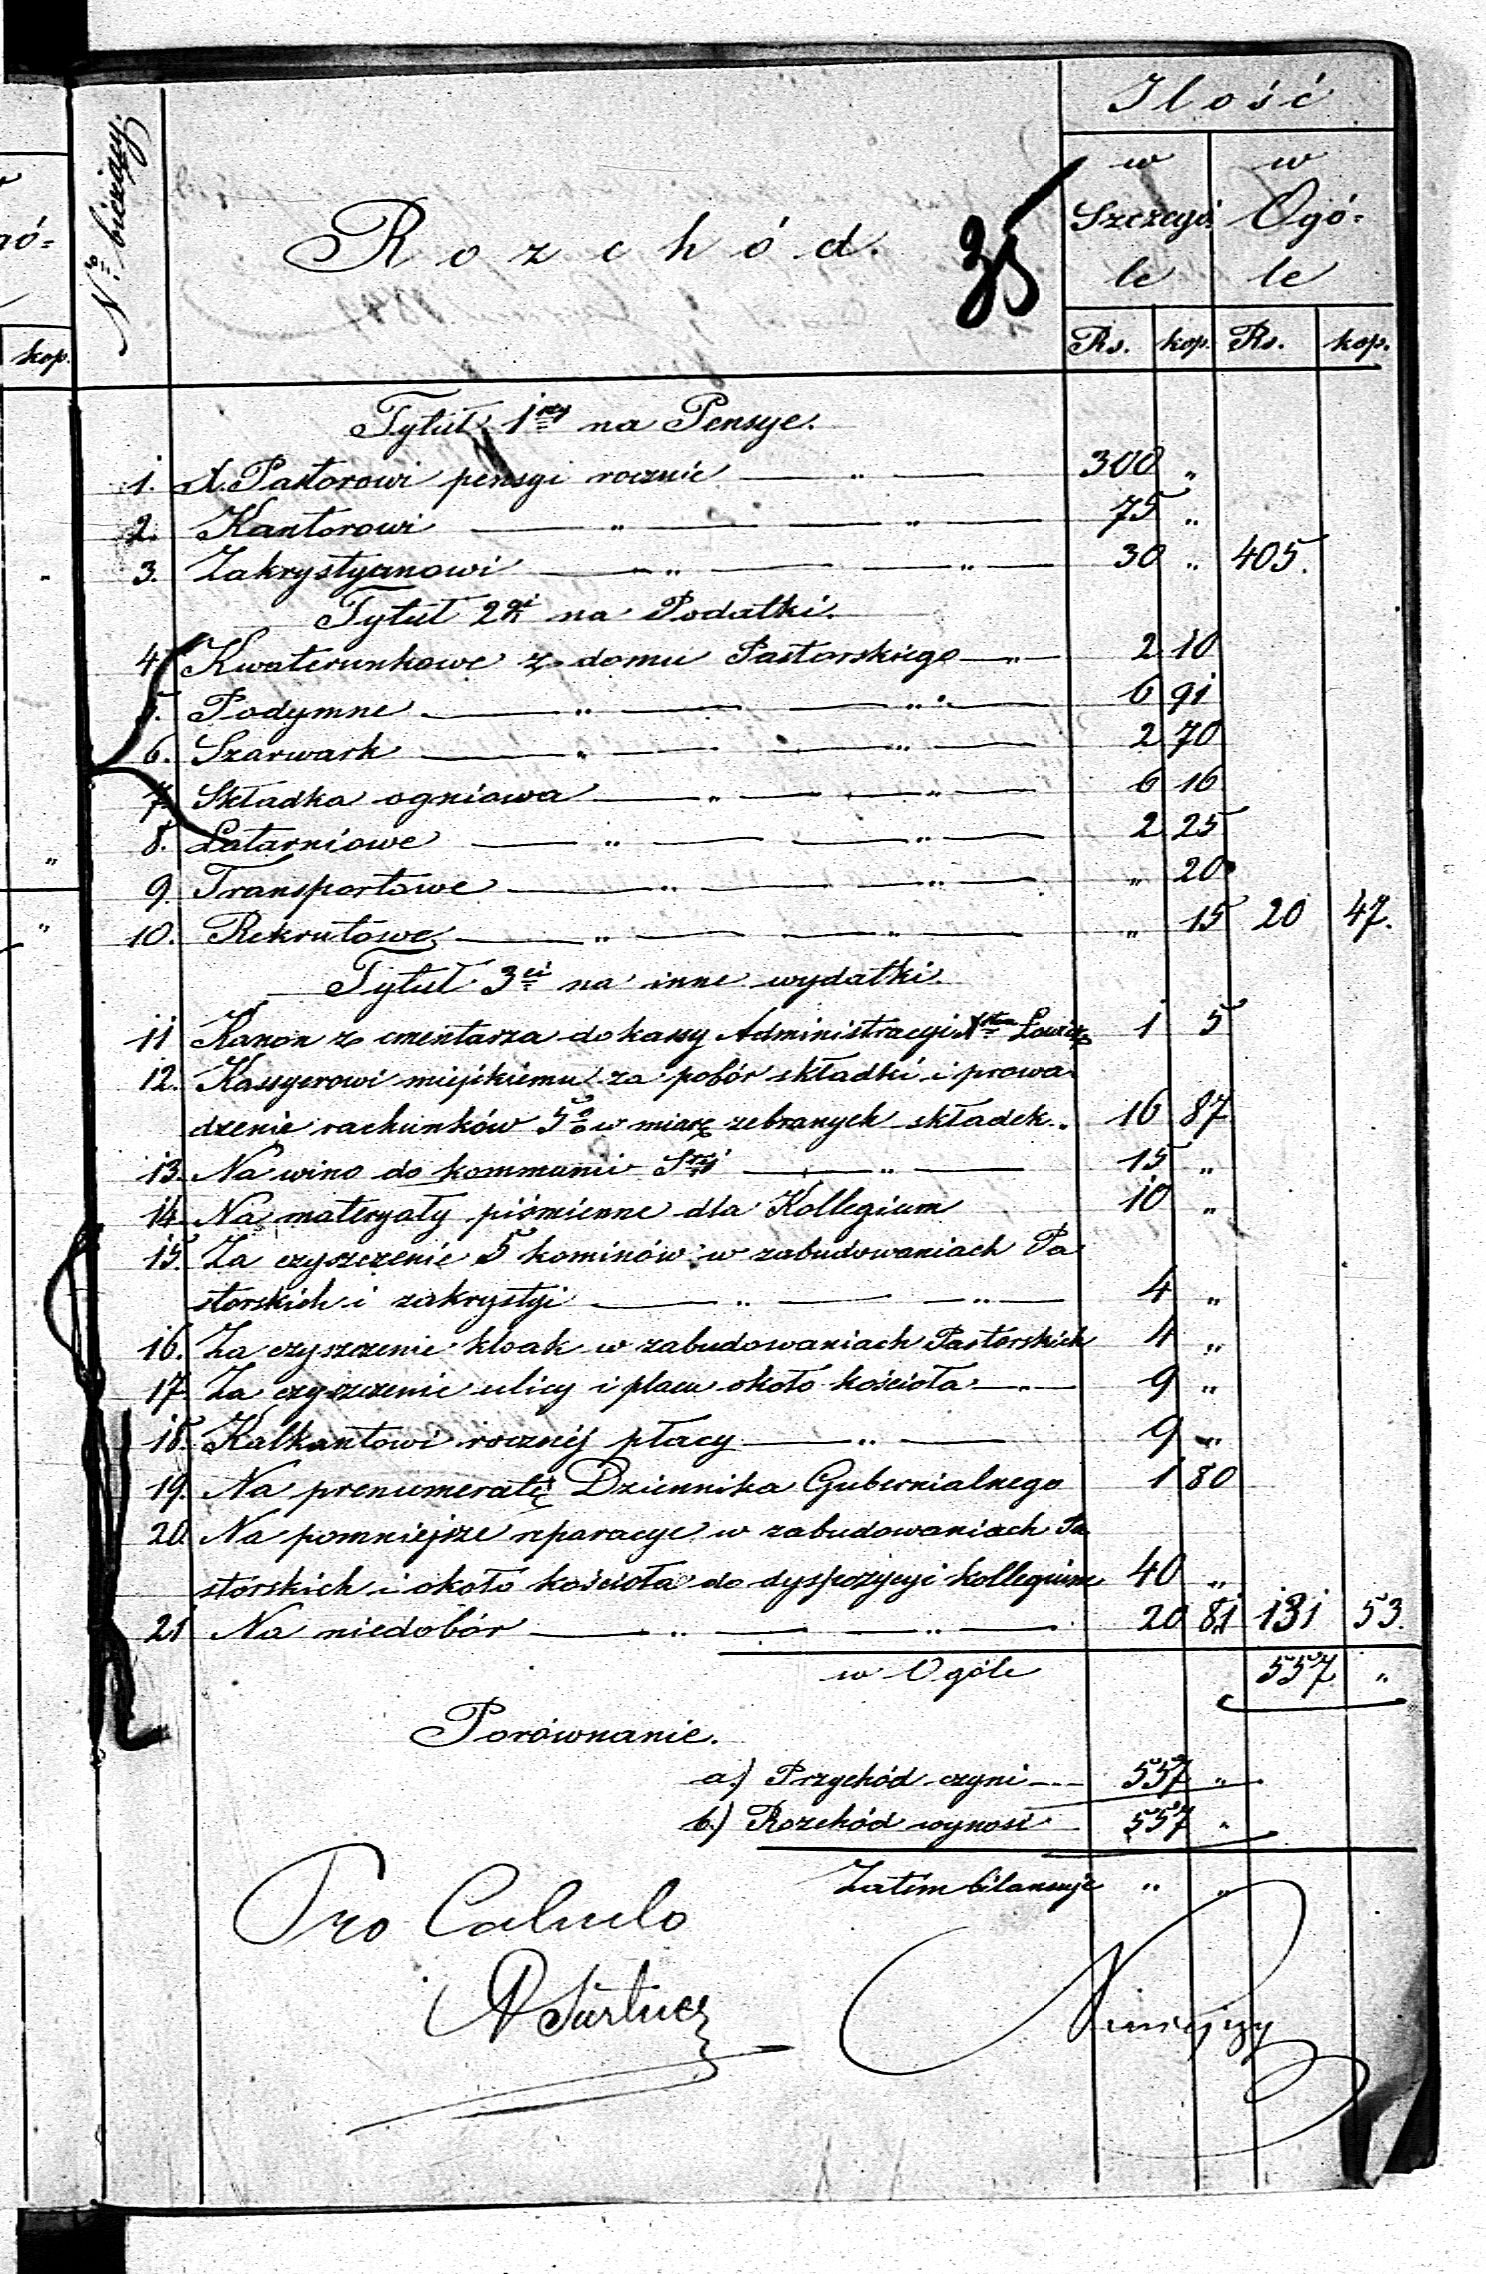 Ilość
w Szczegó- w Ogó-
le le
No bieżący. Rozchód. 35
Rs. kop. Rs. kop.
kop.
Tytuł 1szy na Pensye.
1. X. Pastorowi pensyi rocznie — " — 300 "
2. Kantorowi — " — — " — 75 "
3. Zakrystyanowi — " — — " — 30 " 405.
Tytuł 2gi na Podatki.
4. Kwaterunkowe z domu Pastorskiego — " — 2 10
5. Podymne — " — — " — 6 91
6. Szarwark — " — — " — 2 70
7. Składka ogniowa — " — — " — 6 16
8. Latarniowe — " — — " — 2 25
9. Transportowe — " — — " — " 20
10. Rekrutowe — " — — " — " 15 20 47.
Tytuł 3ci na inne wydatki.
11 Kanon z cmentarza do kassy Administracyi Xtwa Łowicz 1 5
12. Kassyerowi miejskiemu za pobór składki i prowa-
dzenie rachunków 5% w miarę zebranych składek. 16 87
13. Na wino do kommunii Stéj — " — 15 "
14. Na materyały piśmienne dla Kollegium 10 "
15. Za czyszczenie 5 kominów w zabudowaniach Pa
storskich i zakrystyi — " — — " — 4 "
16. Za czyszczenie kloak w zabudowaniach Pastorskich 4 "
17. Za czyszczenie ulicy i placu około kościoła — " — 9 "
18. Kalkantowi rocznéj płacy — " — 9 "
19. Na prenumeratę Dziennika Gubernialnego 1 80
20. Na pomniejsze reparacye w zabudowaniach Pa
storskich i około kościoła do dyspozycyi kollegium 40 "
21 Na niedobór — " — — " — 20 81 131 53.
w Ogóle 557 "
Porównanie.
a) Przychód czyni — 557 "
b) Rozchód wynosi — 557 "
Zatém bilansuje " "
Pro Calculo